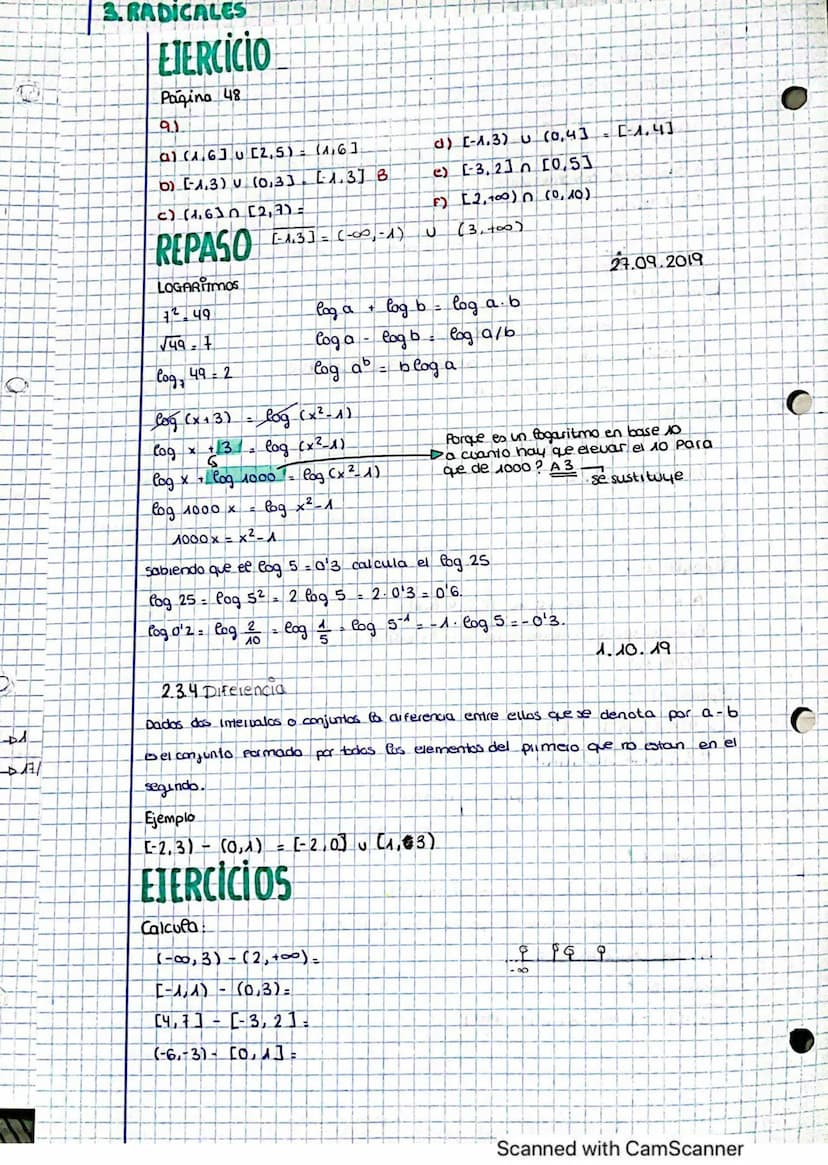 3. RADICALES
EJERCICIO
Página 48
9)
a) (1,6] ∪ [2,5) = (1,6]
b) [-1,3) ∪ (0,3] = [-1,3] B
c) (1,6] ∩ [2,7) =
d) [-1,3) ∪ (0,4] = [-1,4]
e) [-3,2] ∩ [0,5]
F) [2,+∞) ∩ (0,10)
REPASO
[-1,3] = (-∞,-1) ∪ (3,+∞)
27.09.2019
LOGARITMOS
7² = 49
√49 = 7
log₇ 49 = 2
log a + log b = log a·b
log a - log b = log a/b
log aᵇ = b log a
log (x+3) = log (x²-1)
log x + 3 = log (x²-1)
log x + log 1000 = log (x²-1)
Porque es un logaritmo en base 10
a cuanto hay que elevar el 10 para
que de 1000? A 3
se sustituye
log 1000 x = log x²-1
1000x = x²-1
Sabiendo que el log 5 = 0'3 calcula el log 25
log 25 = log 5² = 2 log 5 = 2·0'3 = 0'6.
log 0'2 = log 2/10 = log 1/5 = log 5⁻¹ = -1· log 5 = -0'3.
1.10.19
2.3.4 Diferencia
Dados dos intervalos o conjuntos la diferencia entre ellos que se denota por a-b
es el conjunto formado por todos los elementos del primero que no estan en el
segundo.
Ejemplo
[-2,3) - (0,1) = [-2,0] ∪ [1,3)
EJERCICIOS
Calcula:
(-∞,3) - (2,+∞) =
[-1,1) - (0,3) =
[4,7] - [-3,2] =
(-6,-3) - [0,1] =
-∞
Scanned with CamScanner